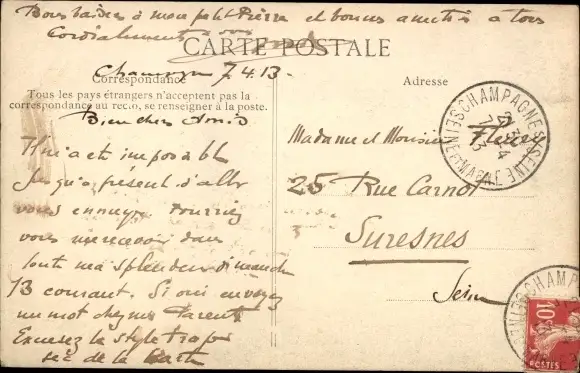 Bons baisers à mon petit Pierre et bonnes amitiés à tous
Cordialement à vous
CARTE POSTALE
Correspondance
Champagne 7.4.13.
Tous les pays étrangers n'acceptent pas la
correspondance au recto, se renseigner à la poste.
Bien chers Amis
Il m'a été impossible
jusqu'à présent d'aller
vous ennuyer Pourriez
vous me recevoir dans
toute ma splendeur dimanche
13 courant. Si oui envoyez
un mot chez mes Parents
Excusez le style trop
sec de la carte
Adresse
Madame et Monsieur
25 Rue Carnot
Suresnes
Seine
CHAMPAGNE S/SEINE
SEINE ET MARNE
7 -4
13
CHAMP
10
POSTES